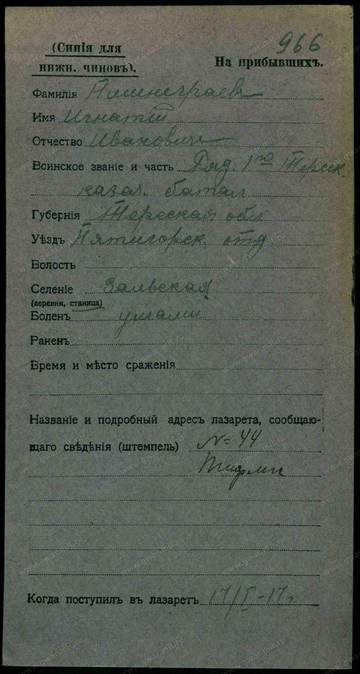 966
(Синія для
нижн. чиновъ).
На прибывшихъ.
Фамилія
Имя Игнатій
Отчество Ивановичъ
Воинское званіе и часть Ряд 1го Терск
казач. батал
Губернія Терская обл
Уѣздъ Пятигорск отд
Волость
Селеніе
(деревня, станица)
Боленъ ушами
Раненъ
Время и мѣсто сраженія
Названіе и подробный адресъ лазарета, сообщаю-
щаго свѣдѣнія (штемпель) № 44
Тифлис
Когда поступилъ въ лазаретъ 17/I-17г